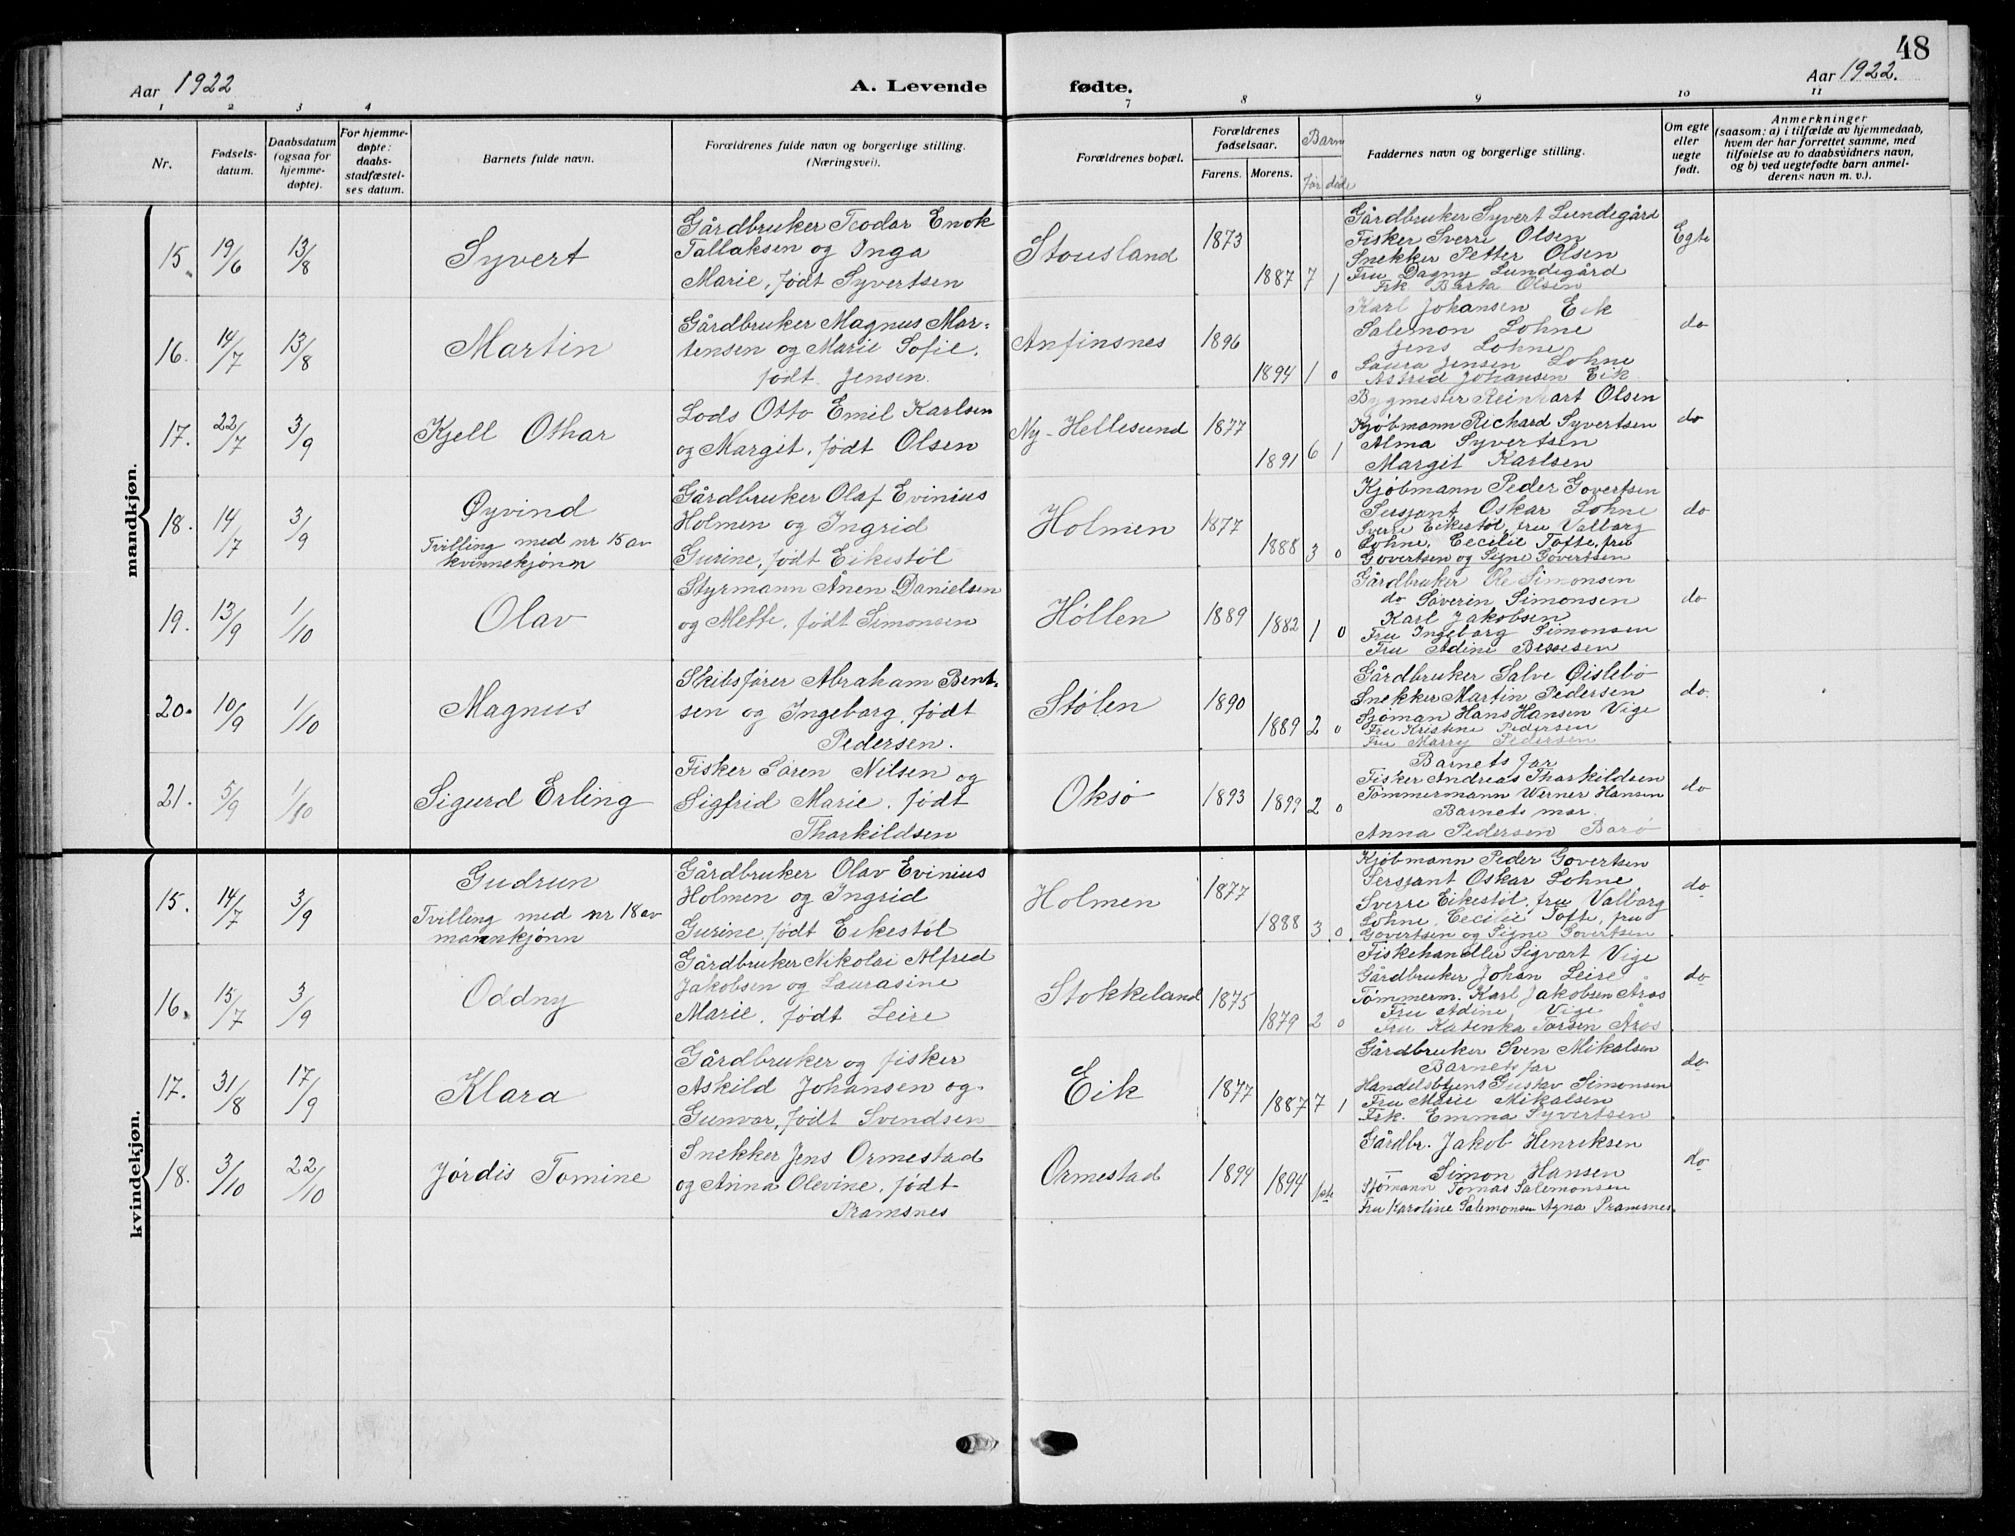 48
Aar 1922
A. Levende fødte.
Aar 1922.
1 2 3 4 7 8 9 10 11
Nr.
Fødsels-
datum.
Daabsdatum
(ogsaa for
hjemme-
døpte).
For hjemme-
døpte:
daabs-
stadfæstel-
ses datum.
Barnets fulde navn.
Forældrenes fulde navn og borgerlige stilling.
(Næringsvei).
Forældrenes bopæl.
Forældrenes
fødselsaar.
Farens. Morens.
Barn
før døde
Faddernes navn og borgerlige stilling.
Om egte
eller
uegte
født.
Anmerkninger
(saasom: a) i tilfælde av hjemmedaab,
hvem der har forrettet samme, med
tilføielse av to daabsvidners navn,
og b) ved uegtefødte barn anmel-
derens navn m. v.).
mandkjøn.
15. 19/6 13/8
Syvert
Gårdbruker Teodor Enok
Tallaksen og Inga
Marie, født Syvertsen
Stousland
1873
1887 7 1
Gårdbruker Syvert Lundegård
Fisker Sverre Olsen
Snekker Petter Olsen
Fru Dagny Lundegård
Frk Berta Olsen
Egte
16. 14/7 13/8
Martin
Gårdbruker Magnus Mar-
tensen og Marie Sofie,
født Jensen.
Anfinsnes
1896
1894 1 0
Karl Johansen Eik
Salemon Lohne
Jens Lohne
Laura Jensen Lohne
Astrid Johansen Eik
do
17. 22/7 3/9
Kjell Othar
Lods Otto Emil Karlsen
og Margit, født Olsen
Ny-Hellesund
1877
1891 6 1
Bygmester Reinhart Olsen
Kjøbmann Richard Syvertsen
Alma Syvertsen
Margit Karlsen
do
18. 14/7 3/9
Øyvind
Tvilling med nr 15 av
kvinnekjønn
Gårdbruker Olaf Evinius
Holmen og Ingrid
Gurine, født Eikestøl
Holmen
1877
1888 3 0
Kjøbmann Peder Govertsen
Sersjant Oskar Lohne
Sverre Eikestøl, fru Valborg
Lohne, Cecilie Tofte, fru
Govertsen og Signe Govertsen
do
19. 13/9 1/10
Olav
Styrmann Ånen Danielsen
og Mette, født Simonsen
Høllen
1889
1882 1 0
Gårdbruker Ole Simonsen
do Severin Simonsen
Karl Jakobsen
Fru Ingeborg Simonsen
Fru Adine Bessesen
do
20. 10/9 1/10
Magnus
Skibsfører Abraham Bent-
sen og Ingeborg, født
Pedersen.
Stølen
1890
1889 2 0
Gårdbruker Salve Øislebø
Snekker Martin Pedersen
Sjøman Hans Hansen Vige
Fru Kristine Pedersen
Fru Marry Pedersen
do
21. 5/9 1/10
Sigurd Erling
Fisker Søren Nilsen og
Sigfrid Marie, født
Tharkildsen
Oksø
1893 1899 2 0
Barnets far
Fisker Andreas Tharkildsen
Tømmermann Werner Hansen
Barnets mor.
Anna Pedersen Borø
do
kvindekjøn.
15. 14/7 3/9
Gudrun
Tvilling med nr 18 av
mannkjønn
Gårdbruker Olav Evinius
Holmen og Ingrid
Gurine, født Eikestøl
Holmen
1877
1888 3 0
Kjøbmann Peder Govertsen
Sersjant Oskar Lohne
Sverre Eikestøl, fru Valborg
Lohne, Cecilie Tofte, fru
Govertsen og Signe Govertsen
do
16. 15/7 3/9
Oddny
Gårdbruker Nikolai Alfred
Jakobsen og Laurasine
Marie, født Leire
Stokkeland
1875
1879 2 0
Fiskehandler Sigvart Vige
Gårdbruker Johan Leire
Tømmerm. Karl Jakobsen Åros
Fru Adine Vige
Fru Katenka Torsen Åros
do
17. 31/8 17/9
Klara
Gårdbruker og fisker
Askild Johansen og
Gunvor, født Svendsen
Eik
1877 1887 7 1
Gårdbruker Sven Mikalsen
Barnets far
Handelsbtjent Gustav Simonsen
Fru Marie Mikalsen
Frk. Emma Syvertsen
do
18. 3/10 22/10
Jørdis Tomine
Snekker Jens Ormestad
og Anna Olevine, født
Pramsnes
Ormestad
1894 1894 1ste
Gårdbr. Jakob Henriksen
— Simon Hansen
Sjømann Tomas Salemonsen
Fru Karoline Salemonsen Agna Pramsnes.
do